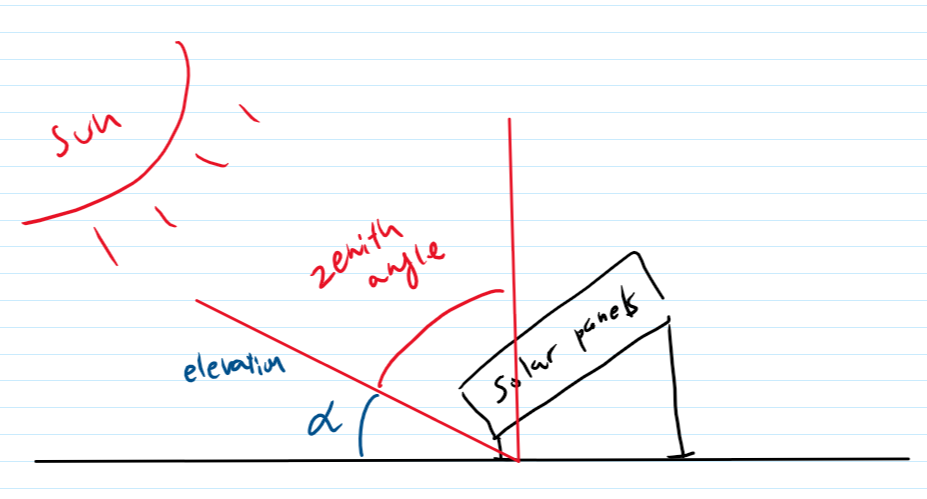 Sun
zenith
angle
elevation
α
Solar panels